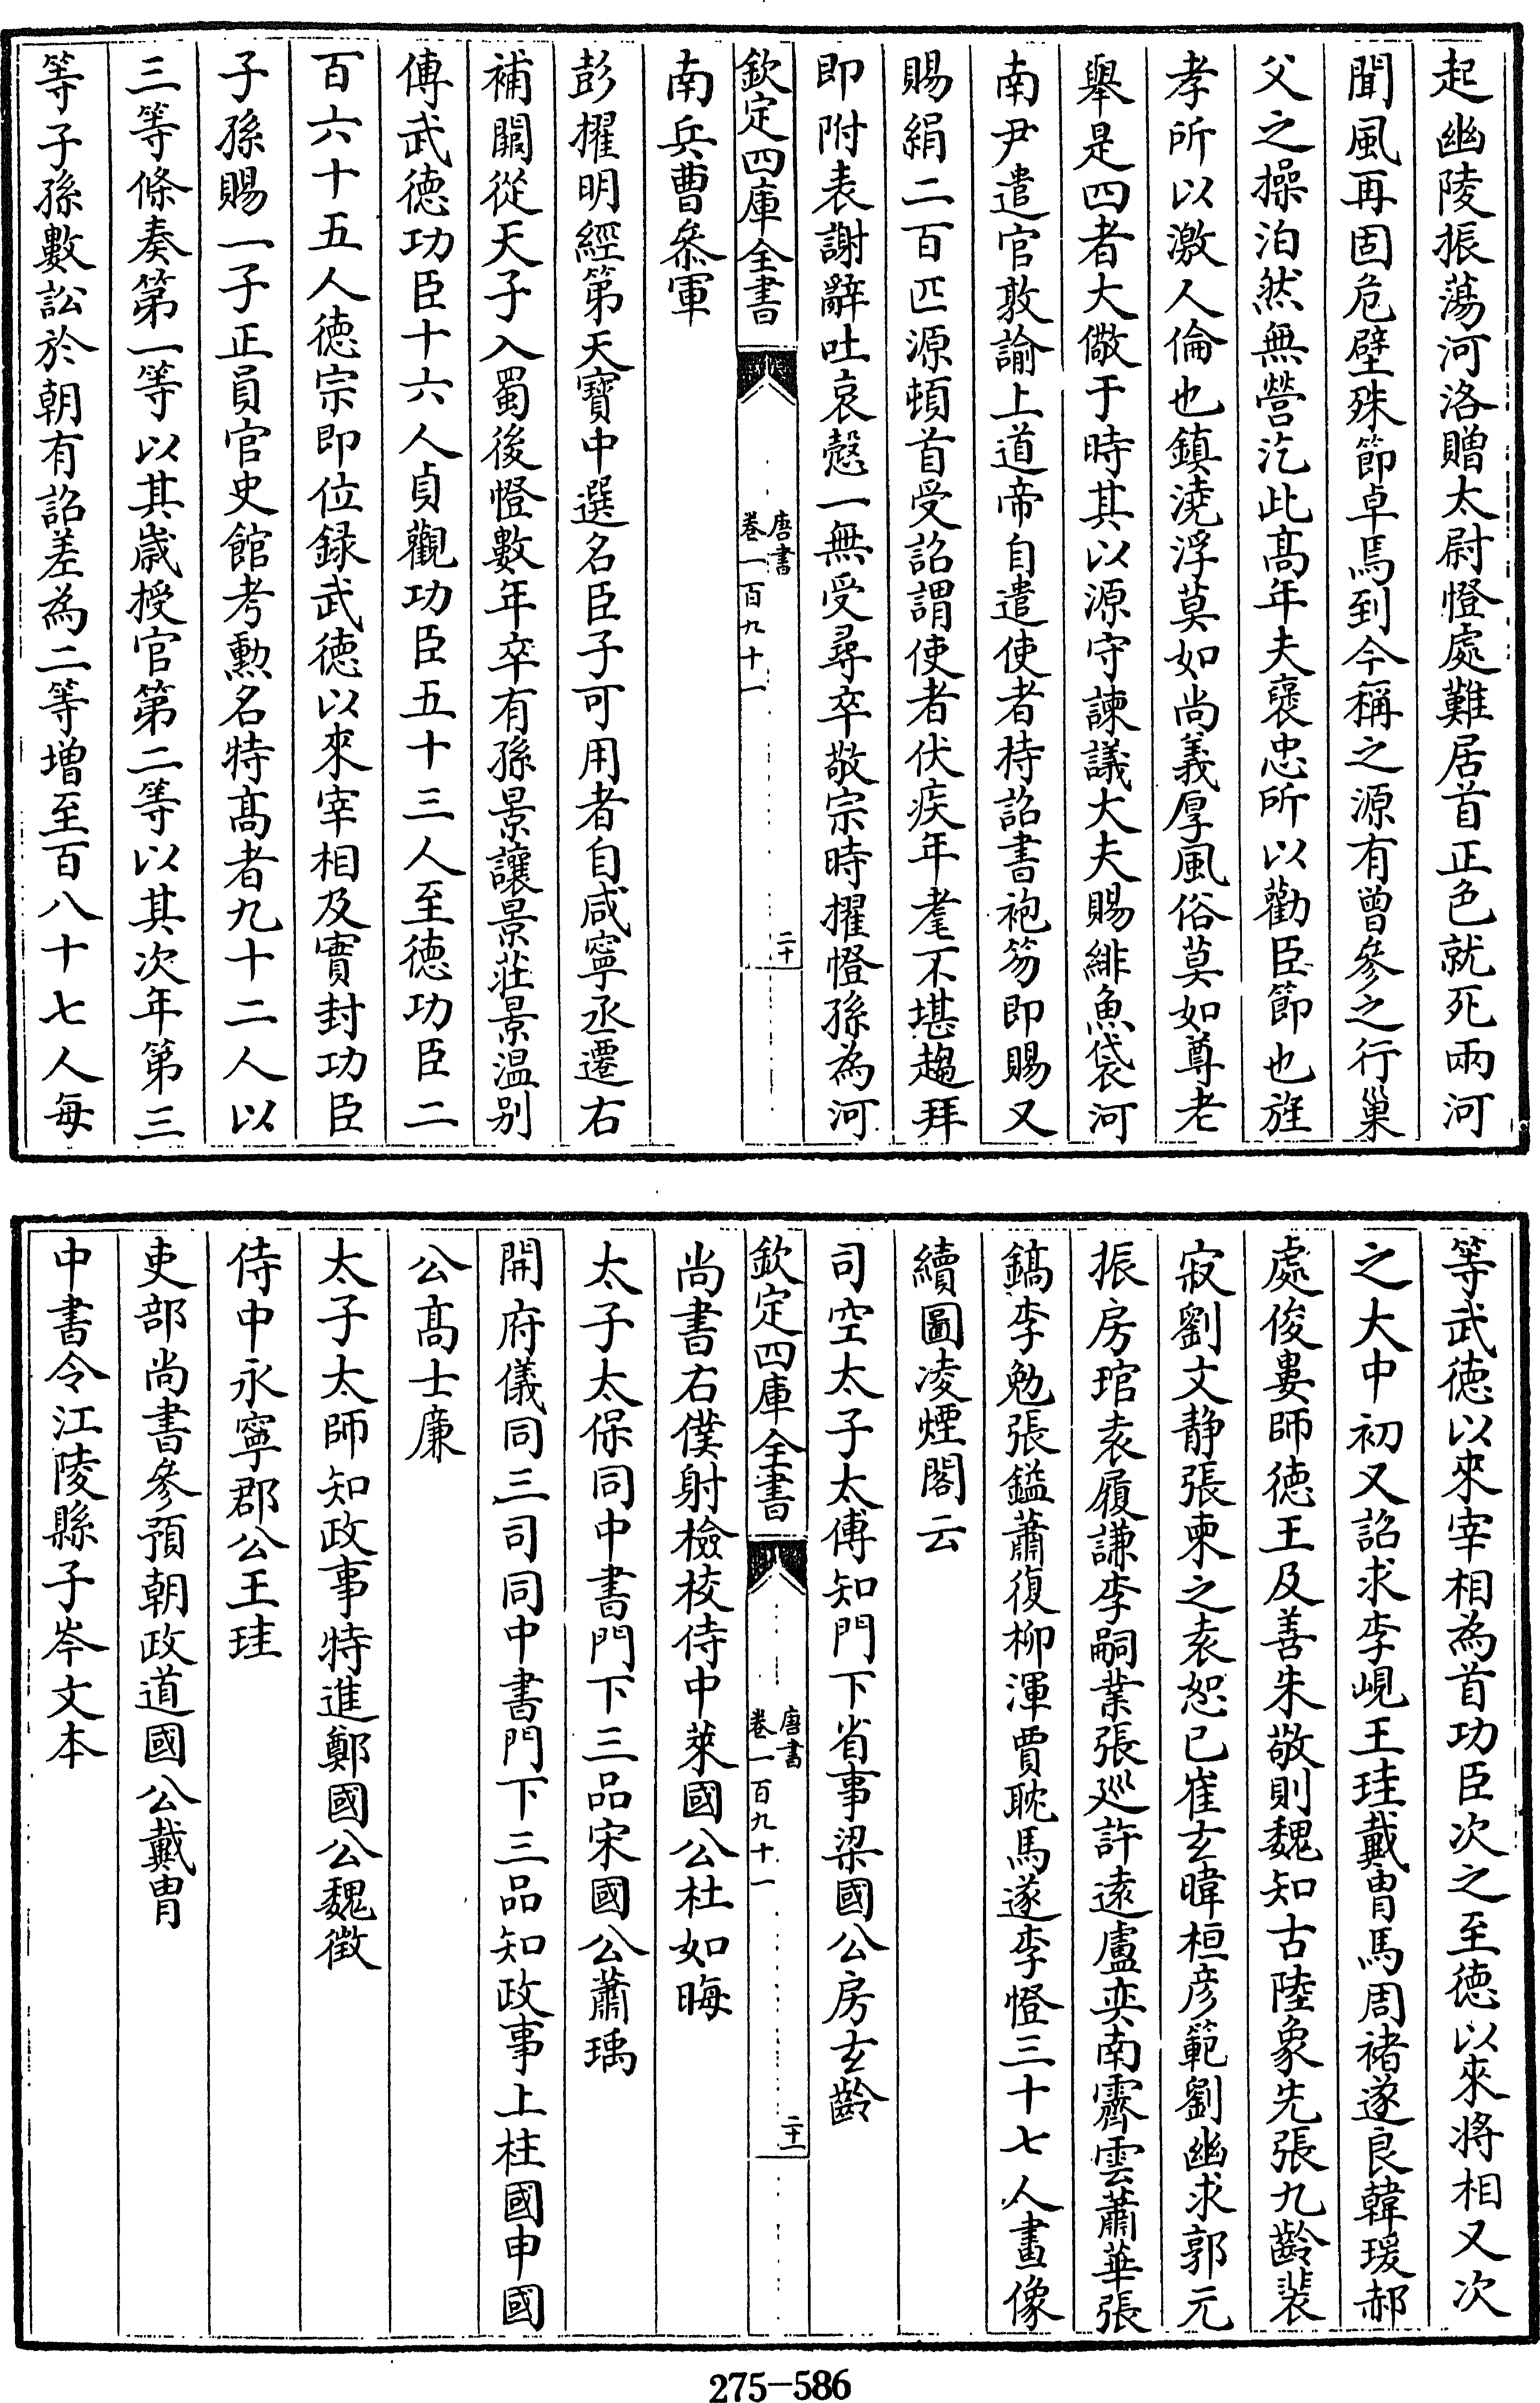 起幽陵振蕩河洛贈太尉憕處難居首正色就死兩河
聞風再固危壁殊節卓焉到今稱之源有曾參之行巢
父之操泊然無營汔此髙年夫襃忠所以勸臣節也旌
孝所以激人倫也鎮澆浮莫如尚義厚風俗莫如尊老
舉是四者大儆于時其以源守諫議大夫賜緋魚袋河
南尹遣官敦諭上道帝自遣使者持詔書袍笏即賜又
賜絹二百匹源頓首受詔謂使者伏疾年耄不堪趨拜
即附表謝辭吐哀愨一無受尋卒敬宗時擢憕孫為河
南兵曹叅軍
欽定四庫全書
唐書
卷一百九十一
二十
彭擢明經第天寶中選名臣子可用者自咸寧丞遷右
補闕從天子入蜀後憕數年卒有孫景讓景莊景温别
傅武徳功臣十六人貞觀功臣五十三人至徳功臣二
百六十五人徳宗即位録武徳以來宰相及實封功臣
子孫賜一子正員官史館考勲名特髙者九十二人以
三等條奏第一等以其嵗授官第二等以其次年第三
等子孫數訟於朝有詔差為二等增至百八十七人每
等武徳以來宰相為首功臣次之至徳以來將相又次
之大中初又詔求李峴王珪戴胄馬周禇遂良韓瑗郝
處俊婁師徳王及善朱敬則魏知古陸象先張九齡裴
寂劉文静張柬之袁恕已崔玄暐桓彦範劉幽求郭元
振房琯袁履謙李嗣業張廵許逺盧奕南霽雲蕭華張
鎬李勉張鎰蕭復柳渾賈耽馬遂李憕三十七人畫像
續圖凌煙閣云
司空太子太傅知門下省事梁國公房玄齡
欽定四庫全書
唐書
卷一百九十一
二十一
尚書右僕射檢校侍中萊國公杜如晦
太子太保同中書門下三品宋國公蕭瑀
開府儀同三司同中書門下三品知政事上柱國申國
公髙士廉
太子太師知政事特進鄭國公魏徵
侍中永寧郡公王珪
吏部尚書參預朝政道國公戴胄
中書令江陵縣子岑文本
275-586